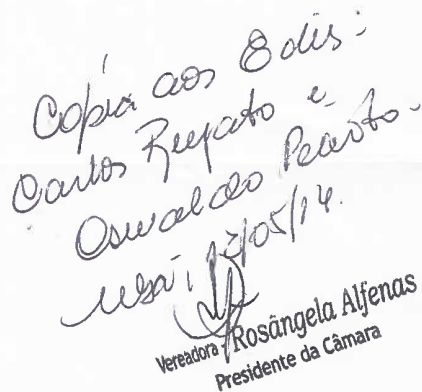 Cópia aos Edis:
Carlos e
Oswaldo
12/05/14.
Vereadora Rosângela Alfenas
Presidente da Câmara